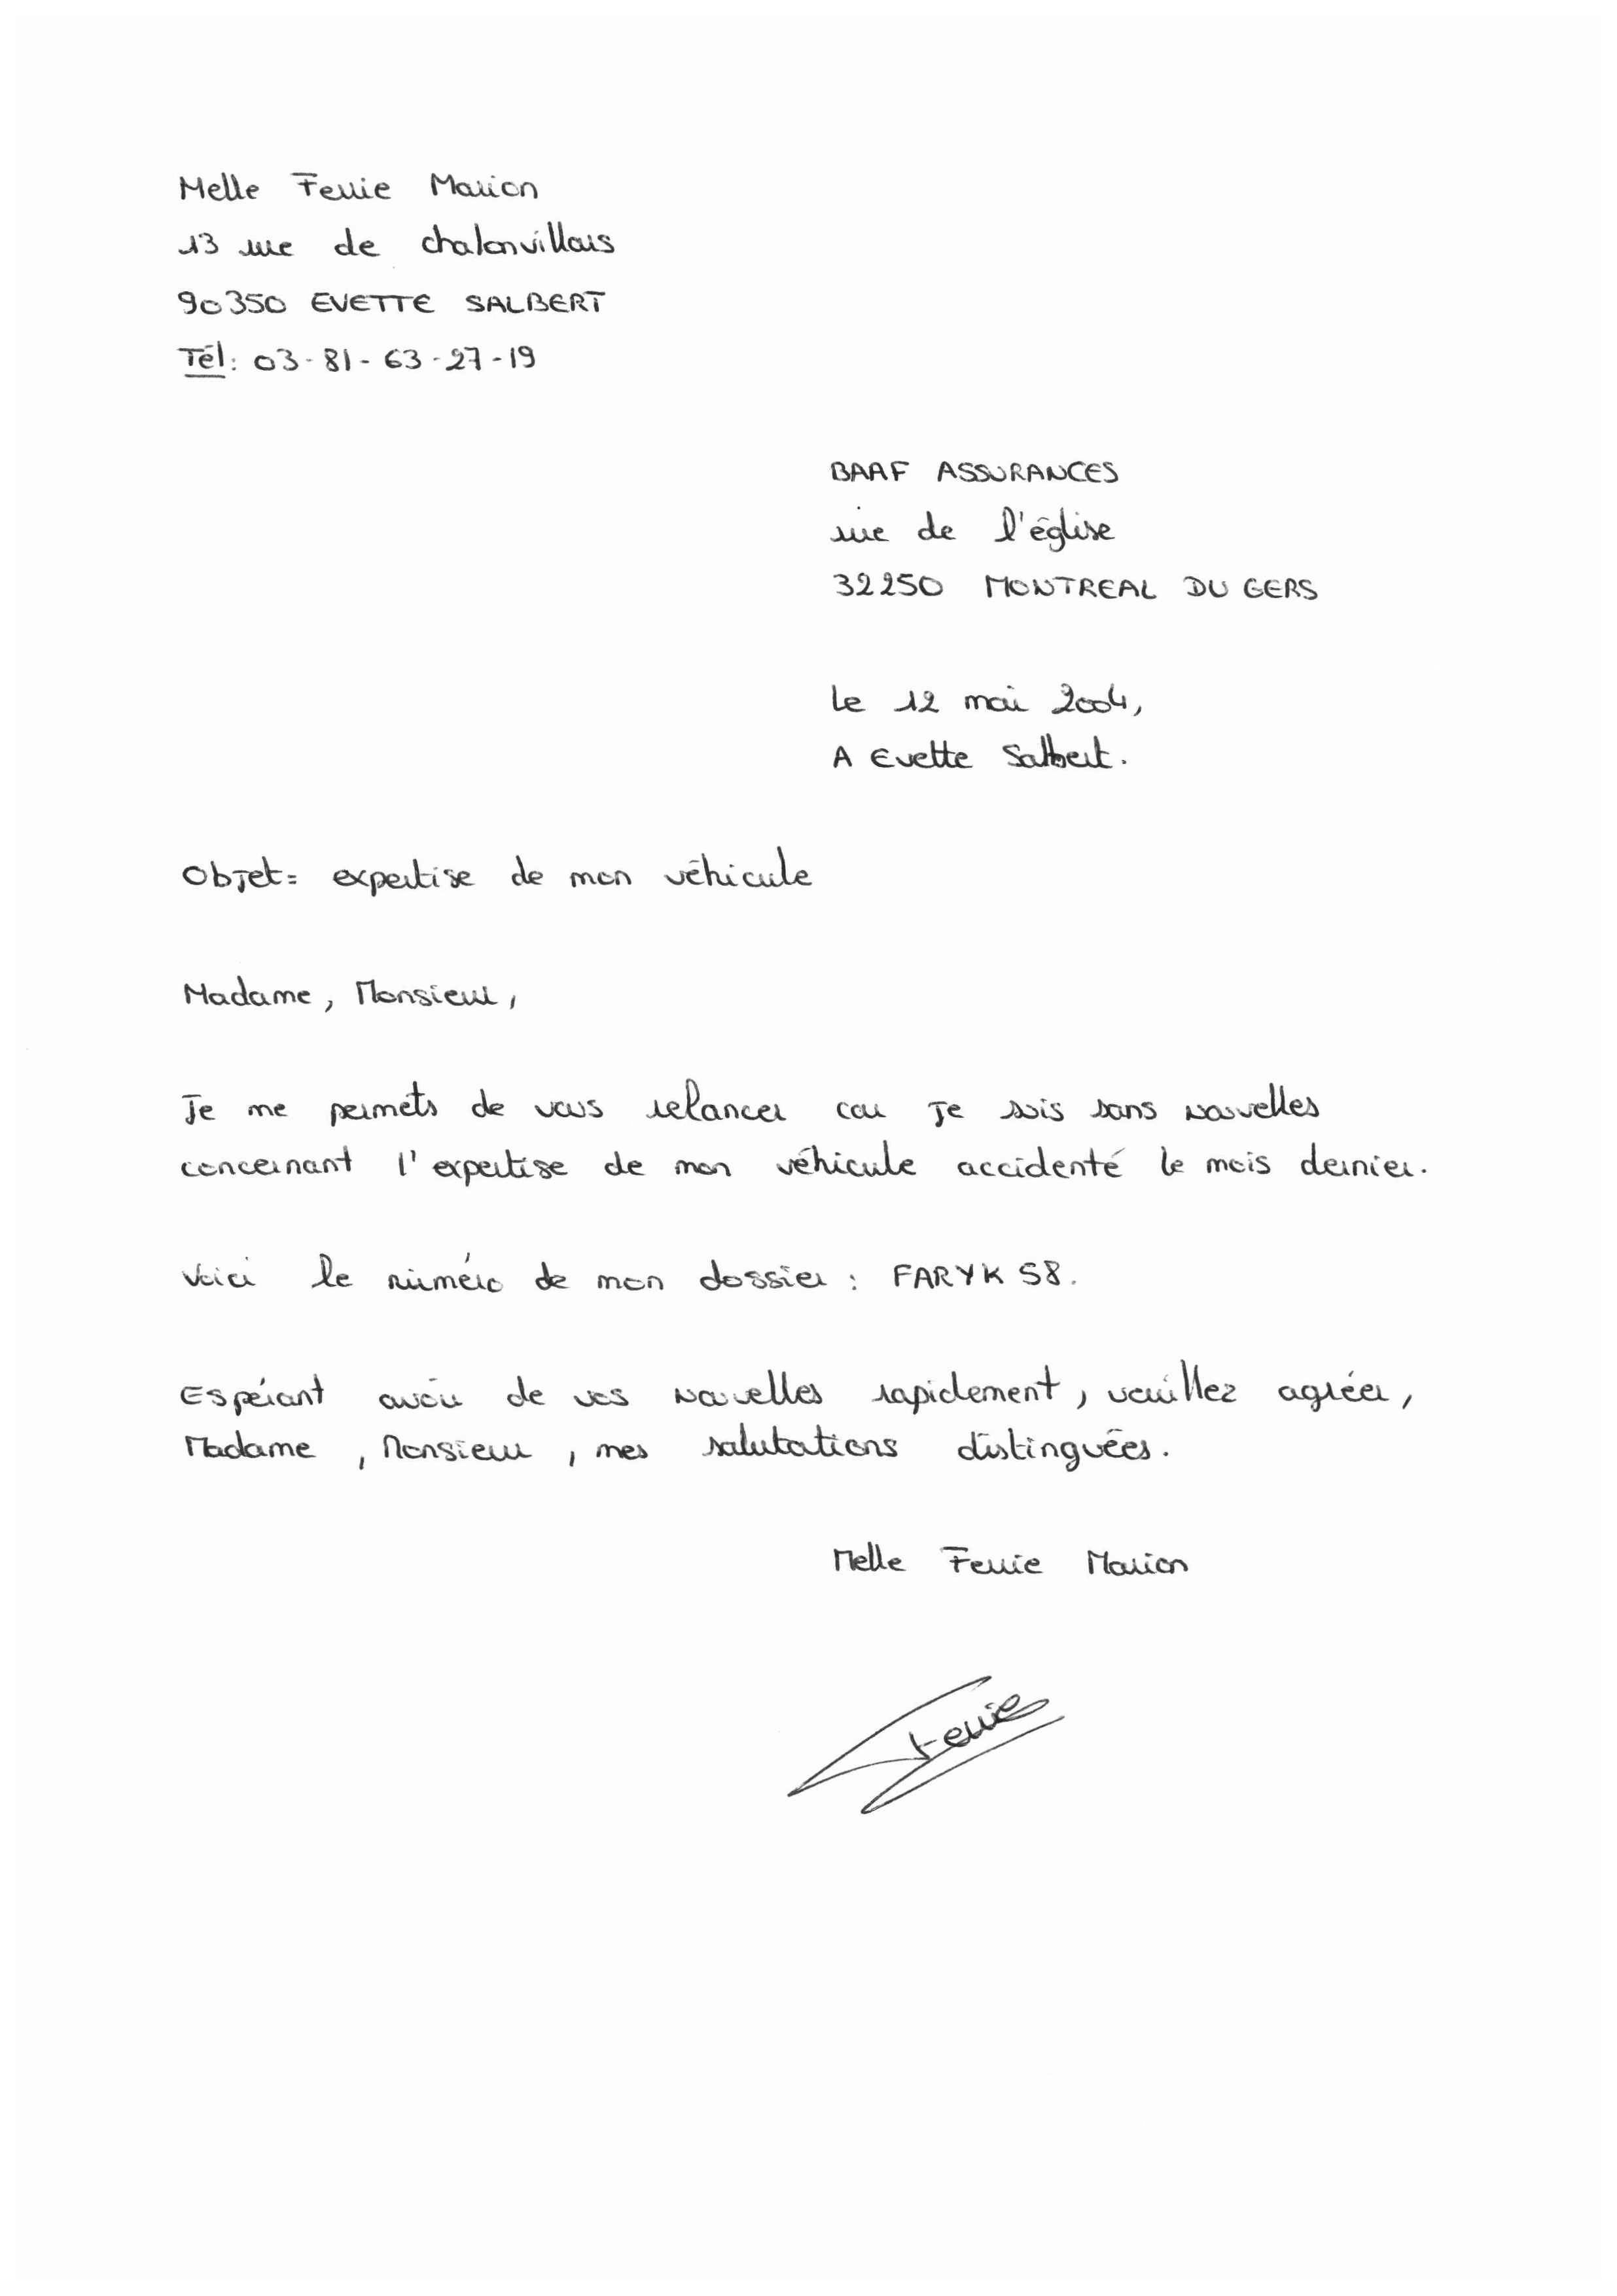 Melle Ferrie Marion
13 rue de chalonvillars
90350 EVETTE SALBERT
Tél: 03-81-63-27-19
BAAF ASSURANCES
rue de l'église
32250 MONTREAL DU GERS
le 12 mai 2004,
A Evette Salbert.
Objet: expertise de mon véhicule
Madame, Monsieur,
Je me permets de vous relancer car je suis sans nouvelles
concernant l'expertise de mon véhicule accidenté le mois dernier.
Voici le numéro de mon dossier : FARYK 58.
Espérant avoir de vos nouvelles rapidement, veuillez agréer,
Madame, Monsieur, mes salutations distinguées.
Melle Ferrie Marion
Ferrie